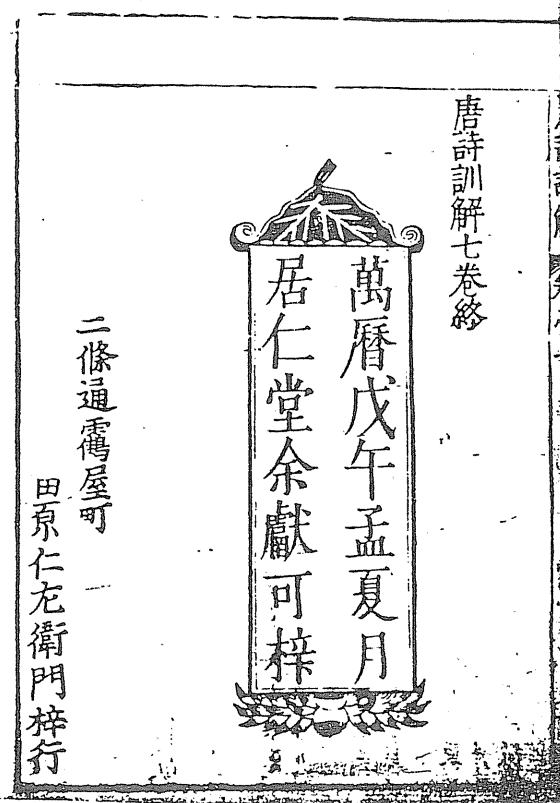 唐詩訓解七卷終
萬曆戊午孟夏月
居仁堂余獻可梓
二條通靏屋町
田原仁左衛門梓行